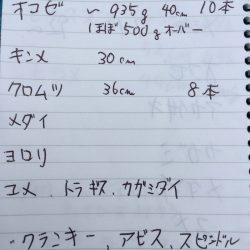 オコゼ 〜 935g 40cm 10本
ほぼ500gオーバー
キンメ 30cm
クロムツ 36cm 8本
メダイ
ヨロリ
ユメ、トラギス、カガミダイ
・クランキー、アビス、スピンドル